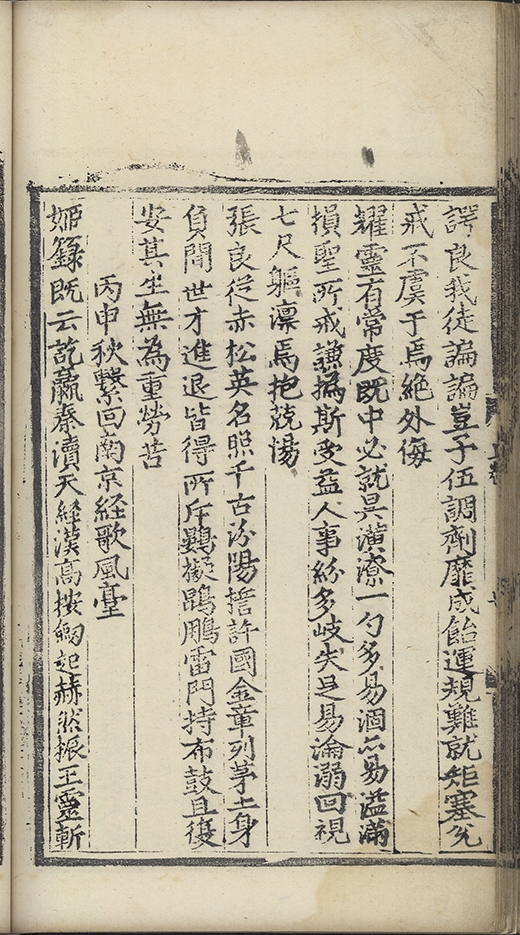 諤良我徒諞諞豈子伍調劑靡成飴運規難就矩塞兌
戒不虞于焉絕外侮
耀靈有常度既中必就昃潢潦一勺多易涸亦易溢滿
損聖所戒謙撝斯受益人事紛多岐失足易淪溺回視
七尺軀凛焉抱兢惕
張良從赤松英名照千古汾陽誓許國金章列茅土身
負間世才進退皆得所斥鷃擬鵾鵬雷門持布鼓且復
安其生無為重勞苦
丙申秋繫回南京経歌風臺
姬籙既云訖嬴秦瀆天經漢高按劒起赫然振王靈斬